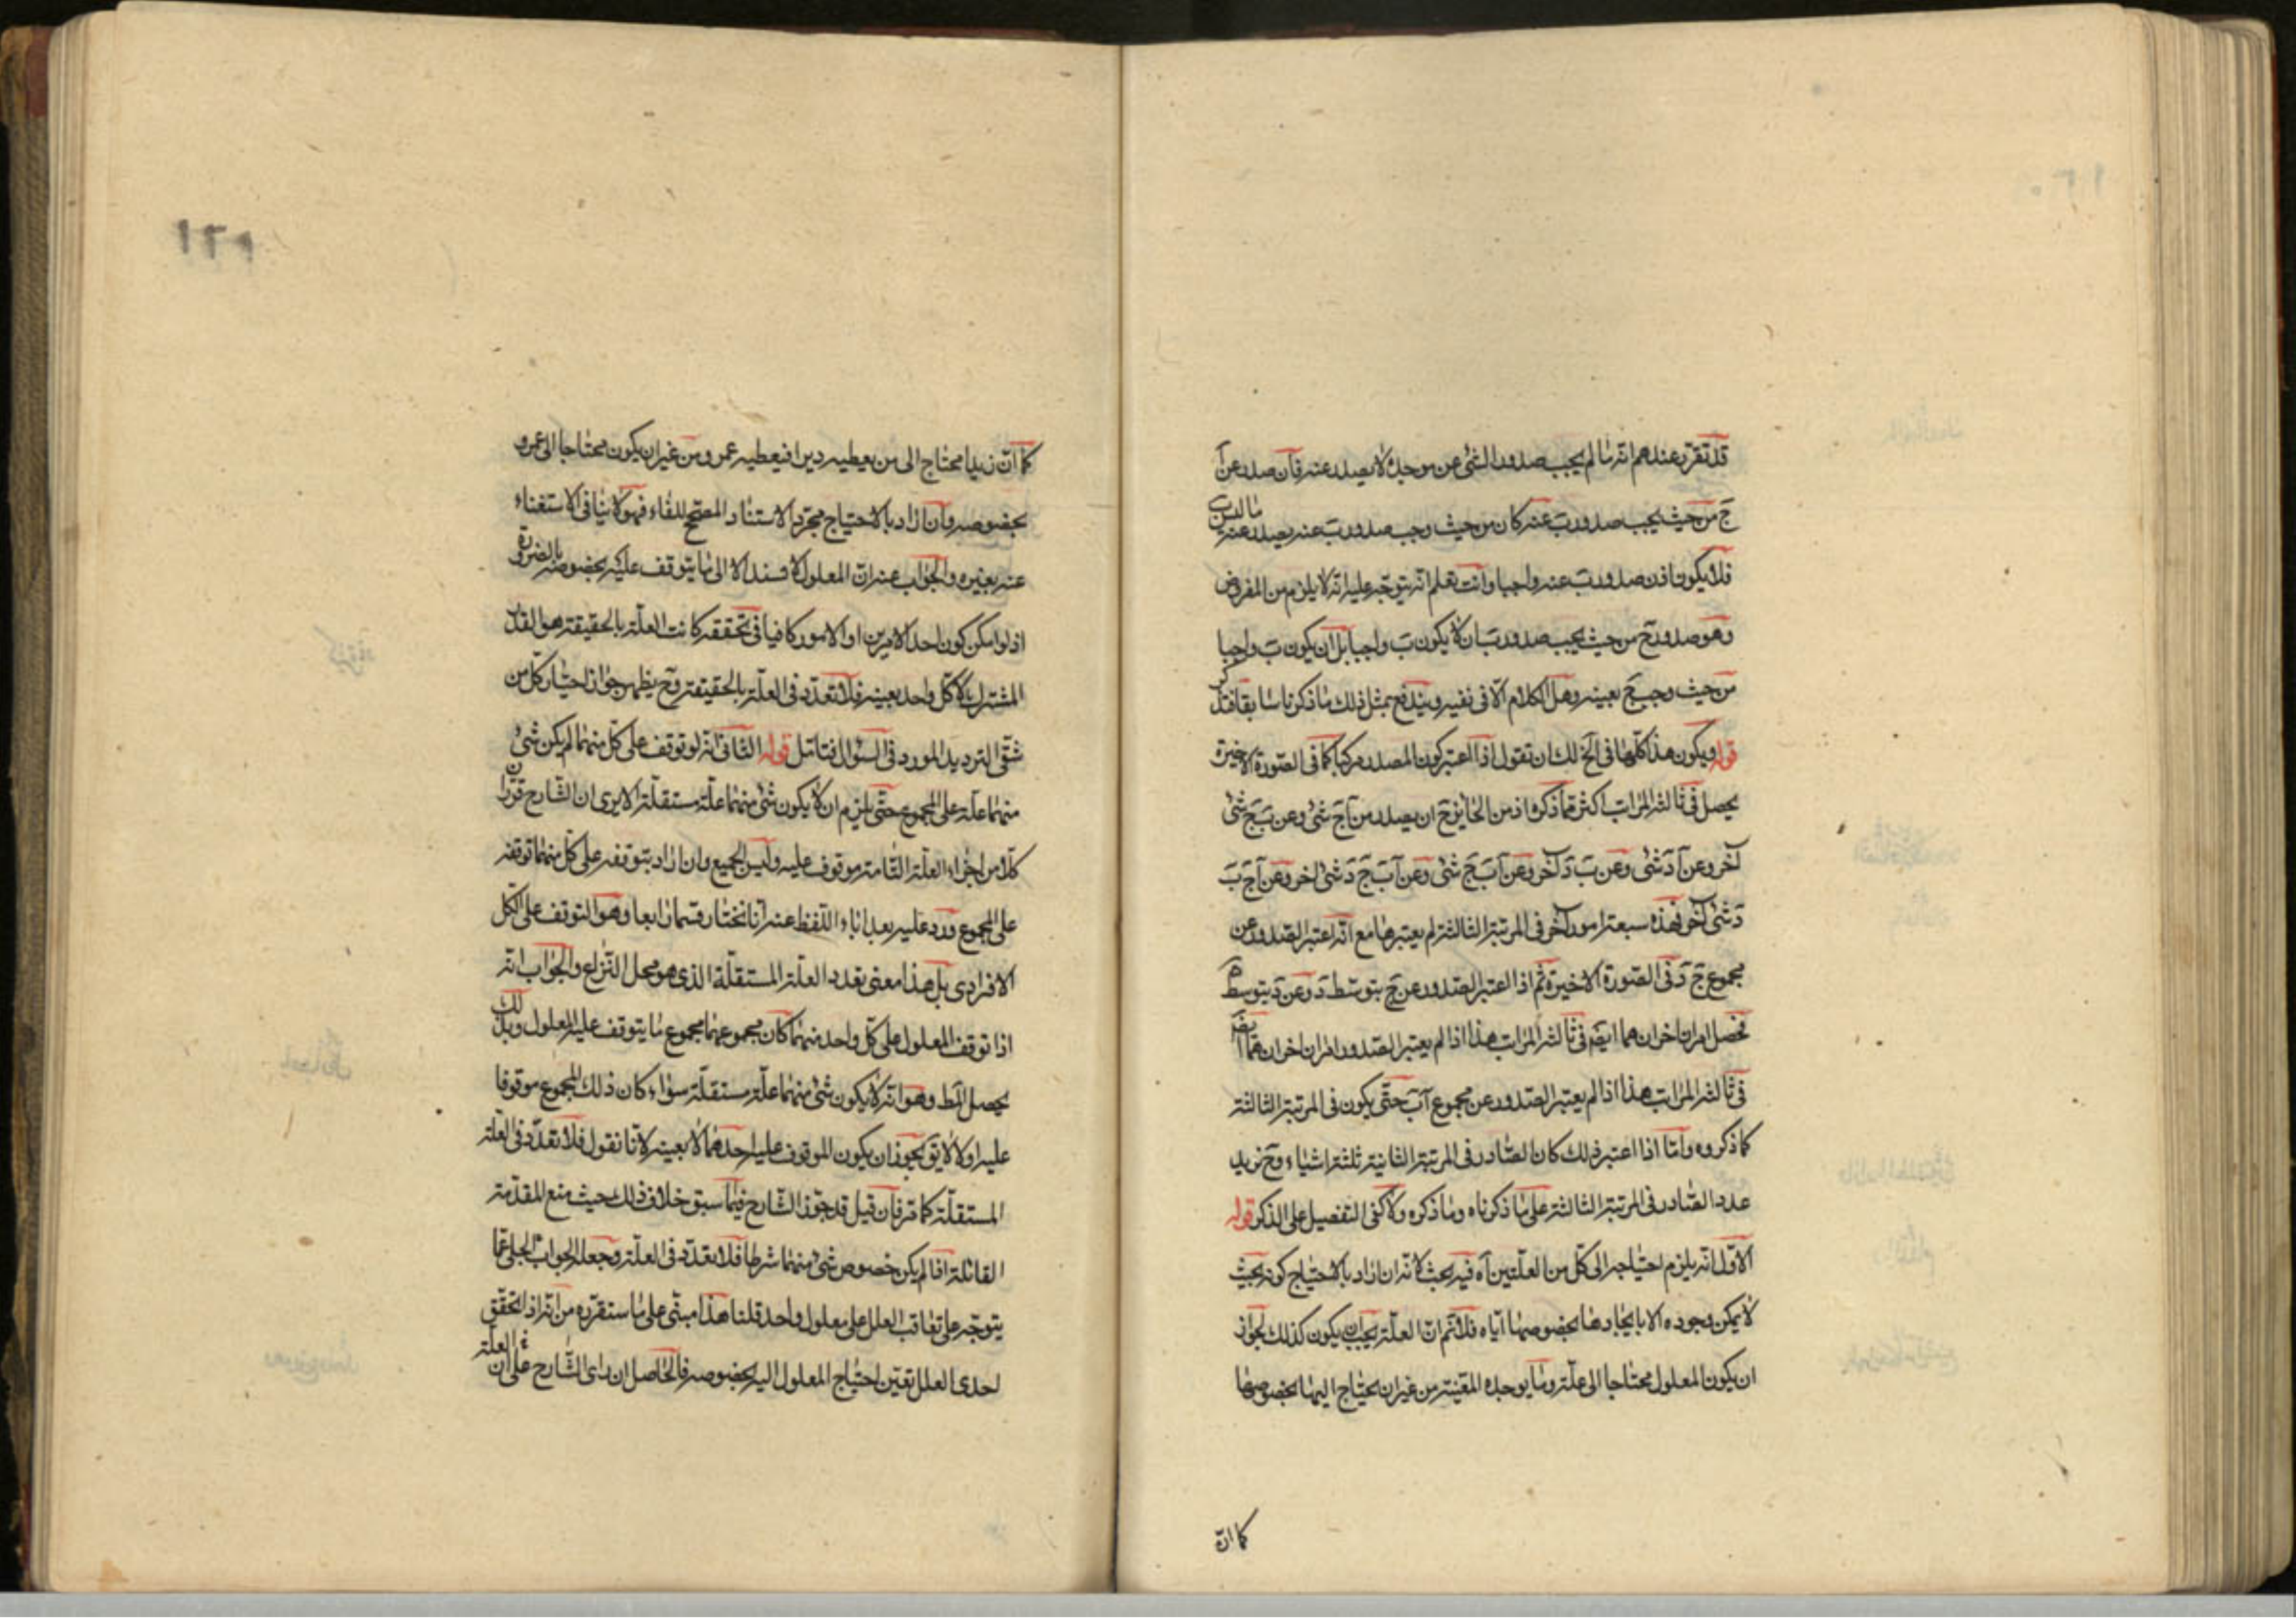 قد تقرر عندهم انه ما لم يجب صدور الشئ عن موجده لا يصدر عنه فان صدر عن آ
ج من حيث يجب صدور ب عنه كان من حيث وجب صدور ب عنه يصدر عنه ما ليس ب
فلا يكون اذن صدور ب عنه واجبا وانت تعلم انه يتوجه عليه انه لا يلزم من المفروض
وهو صدور ج من حيث يجب صدور ب ان لا يكون ب واجبا بل ان يكون ب واجبا
من حيث وجب ج بعينه وهل الكلام الا فى نفيه ويندفع بمثل ذلك ما ذكرنا سابقا فتذكر
قوله ويكون هذا كلها فى الخ لك ان تقول اذا اعتبر كون المصدر مركبا كما فى الصورة الاخيرة
يحصل فى ثالثة المراتب اكثر مما ذكره اذ من الجايز ح ان يصدر من آ ج شئ وعن ب ج شئ
آخر وعن آ د شئ وعن ب د آخر وعن آ ب ج شئ وعن آ ب ج د شئ اخر وعن آ ج ب
د شئ آخر فهذه سبعة امور آخر فى المرتبة الثالثة لم يعتبرها مع انه اعتبر الصدور عن
مجموع ج د فى الصورة الاخيرة ثم اذا اعتبر الصدور عن ج بتوسط د وعن د بتوسط ج
فحصل امران اخران هما ايضه فى ثالثة المراتب هذا اذا لم يعتبر الصدور امران اخران هما ايضه
فى ثالثة المراتب هذا اذا لم يعتبر الصدور عن مجموع آ ب حتى يكون فى المرتبة الثالثة
كما ذكروه واما اذا اعتبر ذلك كان الصادر فى المرتبة الثانية ثلثة اشياء وح نزيد
عدد الصادر فى المرتبة الثالثة على ما ذكرناه وما ذكره ولا كفى التفصيل على الذكر قوله
الاول انه يلزم احتياجه الى كل من العلتين آه فيه بحث لانه ان اراد بالاحتياج كونه بحيث
لا يمكن وجوده الا بايجادها بخصوصها اياه فلا نم ان العلة يجب ان يكون كذلك لجواز
ان يكون المعلول محتاجا الى علة وما يوجده المعينة من غير ان يحتاج اليها بخصوصها
كما ان
١٢١
كما ان زيدا محتاج الى من يعطيه دينرا فيعطيه عمرو من غير ان يكون محتاجا الى عمرو
بخصوصه وان اراد بالاحتياج مجرد الاستناد المصحح للفاء فهو لا ينافى الاستغناء
عنه بعينه والجواب عنه ان المعلول لا يستند الا الى ما يتوقف عليه بخصوصه بالضرورة
اذ لو امكن كون احد الامرين او الامور كافيا فى تحققه كانت العلة بالحقيقة هو القدر
المشترك لا كل واحد بعينه فلا تعدد فى العلة بالحقيقة وح يظهر جواز اختيار كل من
شقى الترديد المورد فى السؤال فتامل قوله الثانى انه لو توقف على كل منهما لم يكن شئ
منهما علة على المجموع حتى يلزم ان لا يكون شئ منهما علة مستقلة الا يرى ان الشارح قرر ان
كلا من اجزاء العلة التامة موقوف عليه وليس الجميع وان اراد بتوقفه على كل منهما توقفه
على المجموع ورد عليه بعد اباء اللفظ عنه انا نختار قسما رابعا وهو التوقف على الكل
الافرادى بل هذا معنى تعدد العلة المستقلة الذى هو محل النزاع والجواب انه
اذا توقف المعلول على كل واحد منهما كان مجموعهما مجموع ما يتوقف عليه المعلول وبذلك
يحصل المط وهو انه لا يكون شئ منهما علة مستقلة سواء كان ذلك المجموع موقوفا
عليه او لا لا يق يجوز ان يكون الموقوف عليه احدهما لا بعينه لانا نقول فلا تعدد فى العلة
المستقلة كما مر فان قيل قد جوز الشارح فيما سبق خلاف ذلك حيث منع المقدمة
القائلة اذا لم يكن خصوص شئ منهما شرطا فلا تعدد فى العلة وجعله الجواب الجلى عما
يتوجه على تعاقب العلل على معلول واحد قلنا هذا مبنى على ما ستقرره من انه اذا تحقق
احدى العلل تعين احتياج المعلول اليه بخصوصه فالحاصل ان راى الشارح على ان العلة